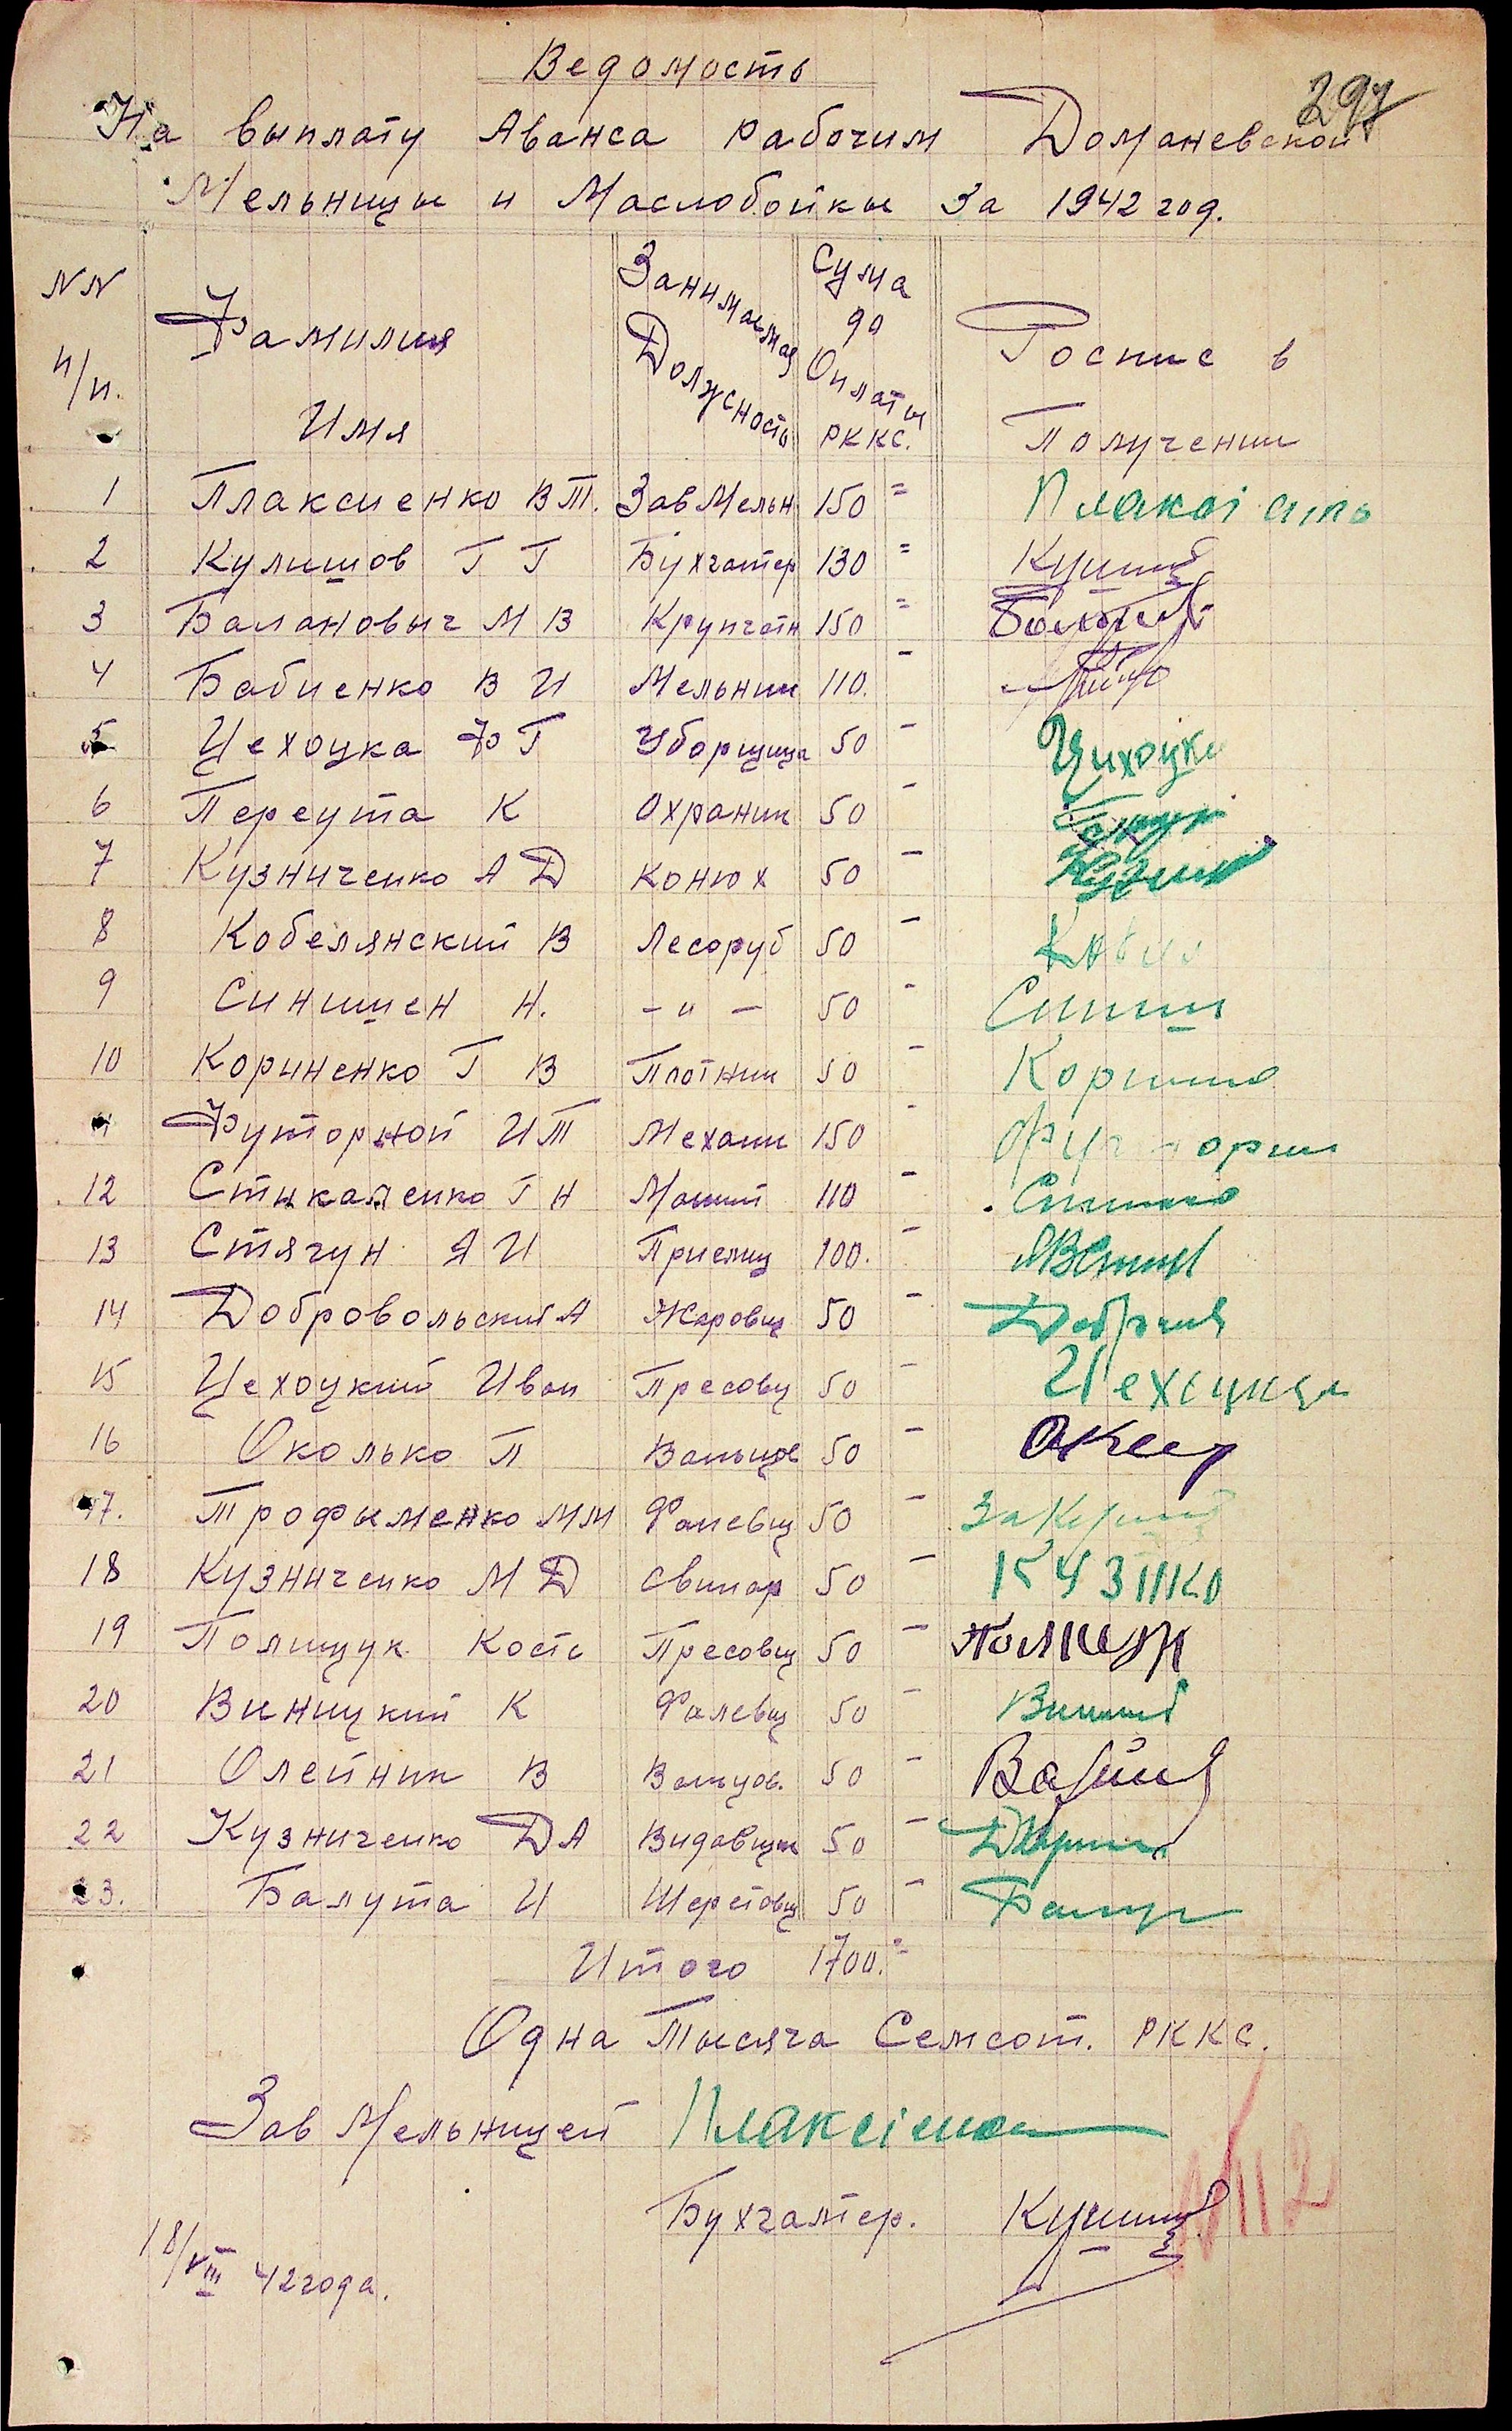 297
Ведомость
На выплату Аванса рабочим Доманевской
Мельницы и Маслобойки за 1942 год.
NN п/п. Фамилия Имя Занимаемая Должность Сума до Оплаты РККС. Роспис в Получении
1 Плаксиенко В Т. Зав Мельн 150 =
2 Кулишов Г Г Бухгалтер 130 =
3 Балановыч М В Крупчатн 150 =
4 Бабиенко В И Мельник 110. -
5 Цехоцка Ф Г Уборщица 50 - Цихоцки
6 Переута К Охраник 50 -
7 Кузниченко А Д Конюх 50 -
8 Кобелянский В Лесоруб 50 -
9 Синишен Н. - " - 50 -
10 Кориненко Г В Плотник 50 -
11 Футорной И Т Механик 150 -
12 Стукаленко Г Н Машин 110 -
13 Стягун Я И Приемщ 100. -
14 Добровольский А Жаровщ 50 -
15 Цехоцкий Иван Пресовщ 50 -
16 Околько П Вальцов 50 -
17. Трофыменко М М Фалевщ 50 -
18 Кузниченко М Д Свинар 50 -
19 Полищук Кость Пресовщ 50 -
20 Виницкий К Фалевщ 50 -
21 Олейник В Вальцов. 50 -
22 Кузниченко Д А Видавщик 50 -
23. Балута И Шеретовщ 50 -
Итого 1700. =
Одна Тысяча Семсот. РККС.
Зав Мельницей
Бухгалтер.
№112
18/VIII 42 года.